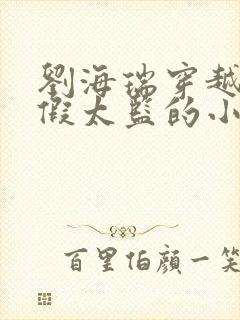 劉海瑞穿越
假太監的小
百里伯顏一笑